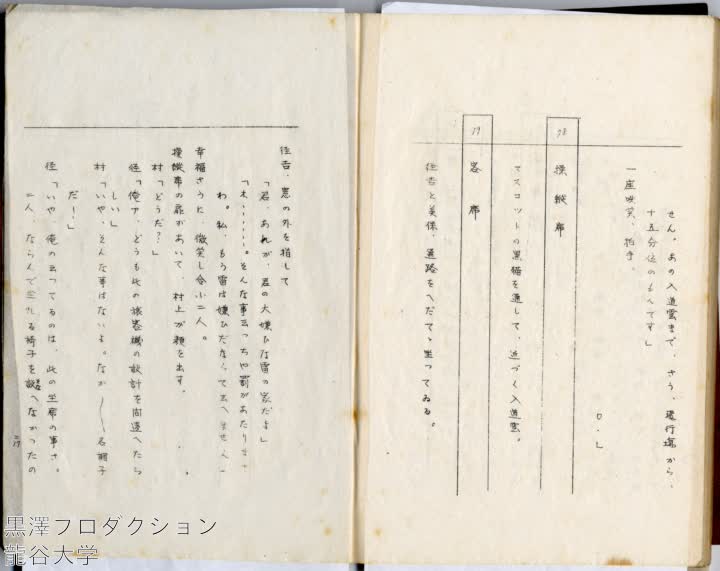 せん。あの入道雲まで、さう、飛行場から、
十五分位のもんです」
一座咲笑、拍手。
O・L
78
操縦席
マスコットの黒猫を通して、近づく入道雲。
79
客席
径吉と美保、通路をへだてゝ坐つてゐる。
径吉、窓の外を指して
「君、あれが、君の大嫌ひな雷の家だよ」
「ま、……。そんな事云つちや罰があたりま
わ。私、もう雷は嫌ひだなんて云へません
幸福さうに、微笑し合ふ二人。
操縦席の扉があいて、村上が顔を出す。
村「どうだ?」
径「俺ア、どうも此の旅客機の設計を間違へたら
しい」
村「いや、そんな事はないよ。なか〳〵名調子
だ―」
径「いや、俺の云つてるのは、此の坐席の事さ。
二人、ならんで坐れる椅子を設へなかつたの
黒澤プロダクション
龍谷大学